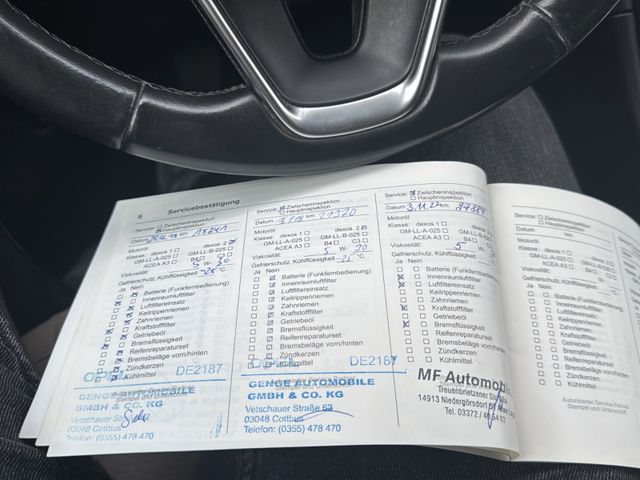 6 Servicebestätigung
Service: Zwischeninspektion
Hauptinspektion
Datum km 18241
Motoröl
Klasse: dexos 1 dexos 2
GM-LL-A-025 GM-LL-B-025
ACEA A3 B4 C3
Viskosität: 5 W- 30
Gefrierschutz, Kühlflüssigkeit -25 °C
Ja Nein
Batterie (Funkfernbedienung)
Innenraumluftfilter
Luftfiltereinsatz
Keilrippenriemen
Zahnriemen
Kraftstofffilter
Getriebeöl
Bremsflüssigkeit
Reifenreparaturset
Bremsbeläge vorn/hinten
Zündkerzen
Kühlmittel
OPEL DE2187
GENGE AUTOMOBILE
GMBH & CO. KG
Vetschauer Straße
03048 Cottbus
Telefon: (0355) 478 470
Service: Zwischeninspektion
Hauptinspektion
Datum km 21320
Motoröl
Klasse: dexos 1 dexos 2
GM-LL-A-025 GM-LL-B-025
ACEA A3 B4 C3
Viskosität: 5 W-
Gefrierschutz, Kühlflüssigkeit -25 °C
Ja Nein
Batterie (Funkfernbedienung)
Innenraumluftfilter
Luftfiltereinsatz
Keilrippenriemen
Zahnriemen
Kraftstofffilter
Getriebeöl
Bremsflüssigkeit
Reifenreparaturset
Bremsbeläge vorn/hinten
Zündkerzen
Kühlmittel
DE2187
GENGE AUTOMOBILE
GMBH & CO. KG
Vetschauer Straße 62
03048 Cottbus
Telefon: (0355) 478 470
Service: Zwischeninspektion
Hauptinspektion
Datum 3.11.22 km
Motoröl
Klasse: dexos 1 dexos 2
GM-LL-A-025 GM-LL-B-025
ACEA A3 B4 C3
Viskosität: 5 W-
Gefrierschutz, Kühlflüssigkeit
Ja Nein
Batterie (Funkfernbedienung)
Innenraumluftfilter
Luftfiltereinsatz
Keilrippenriemen
Zahnriemen
Kraftstofffilter
Getriebeöl
Bremsflüssigkeit
Reifenreparaturset
Bremsbeläge vorn/hinten
Zündkerzen
Kühlmittel
MF Automobile
Treuenbrietzener
14913 Niedergörsdorf
Tel. 03372 /
Service: Zwischeninspektion
Hauptinspektion
Datum km
Motoröl
Klasse: dexos 1
GM-LL-A-025
ACEA A3
Viskosität:
Gefrierschutz, Kühlflüssigkeit
Ja Nein
Innenraumluftfilter
Luftfiltereinsatz
Keilrippenriemen
Zahnriemen
Kraftstofffilter
Getriebeöl
Bremsflüssigkeit
Reifenreparaturset
Bremsbeläge vorn/hinten
Zündkerzen
Kühlmittel
Autorisierter Service Partner
Stempel und Unterschrift